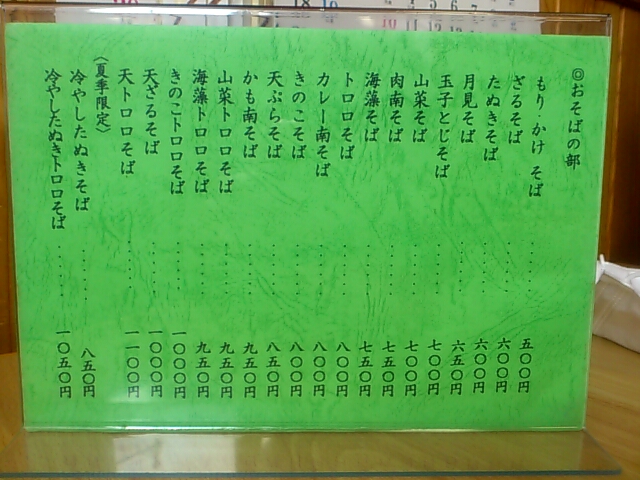 ◎おそばの部
もり・かけ そば ・・・・・・ 五〇〇円
ざるそば ・・・・・・ 六〇〇円
たぬきそば ・・・・・・ 六〇〇円
月見そば ・・・・・・ 六五〇円
玉子とじそば ・・・・・・ 七〇〇円
山菜そば ・・・・・・ 七〇〇円
肉南そば ・・・・・・ 七五〇円
海藻そば ・・・・・・ 七五〇円
トロロそば ・・・・・・ 八〇〇円
カレー南そば ・・・・・・ 八〇〇円
きのこそば ・・・・・・ 八〇〇円
天ぷらそば ・・・・・・ 八五〇円
かも南そば ・・・・・・ 九五〇円
山菜トロロそば ・・・・・・ 九五〇円
海藻トロロそば ・・・・・・ 九五〇円
きのこトロロそば ・・・・・・ 一〇〇〇円
天ざるそば ・・・・・・ 一〇〇〇円
天トロロそば ・・・・・・ 一一〇〇円
〈夏季限定〉
冷やしたぬきそば ・・・・・・ 八五〇円
冷やしたぬきトロロそば ・・・・・・ 一〇五〇円